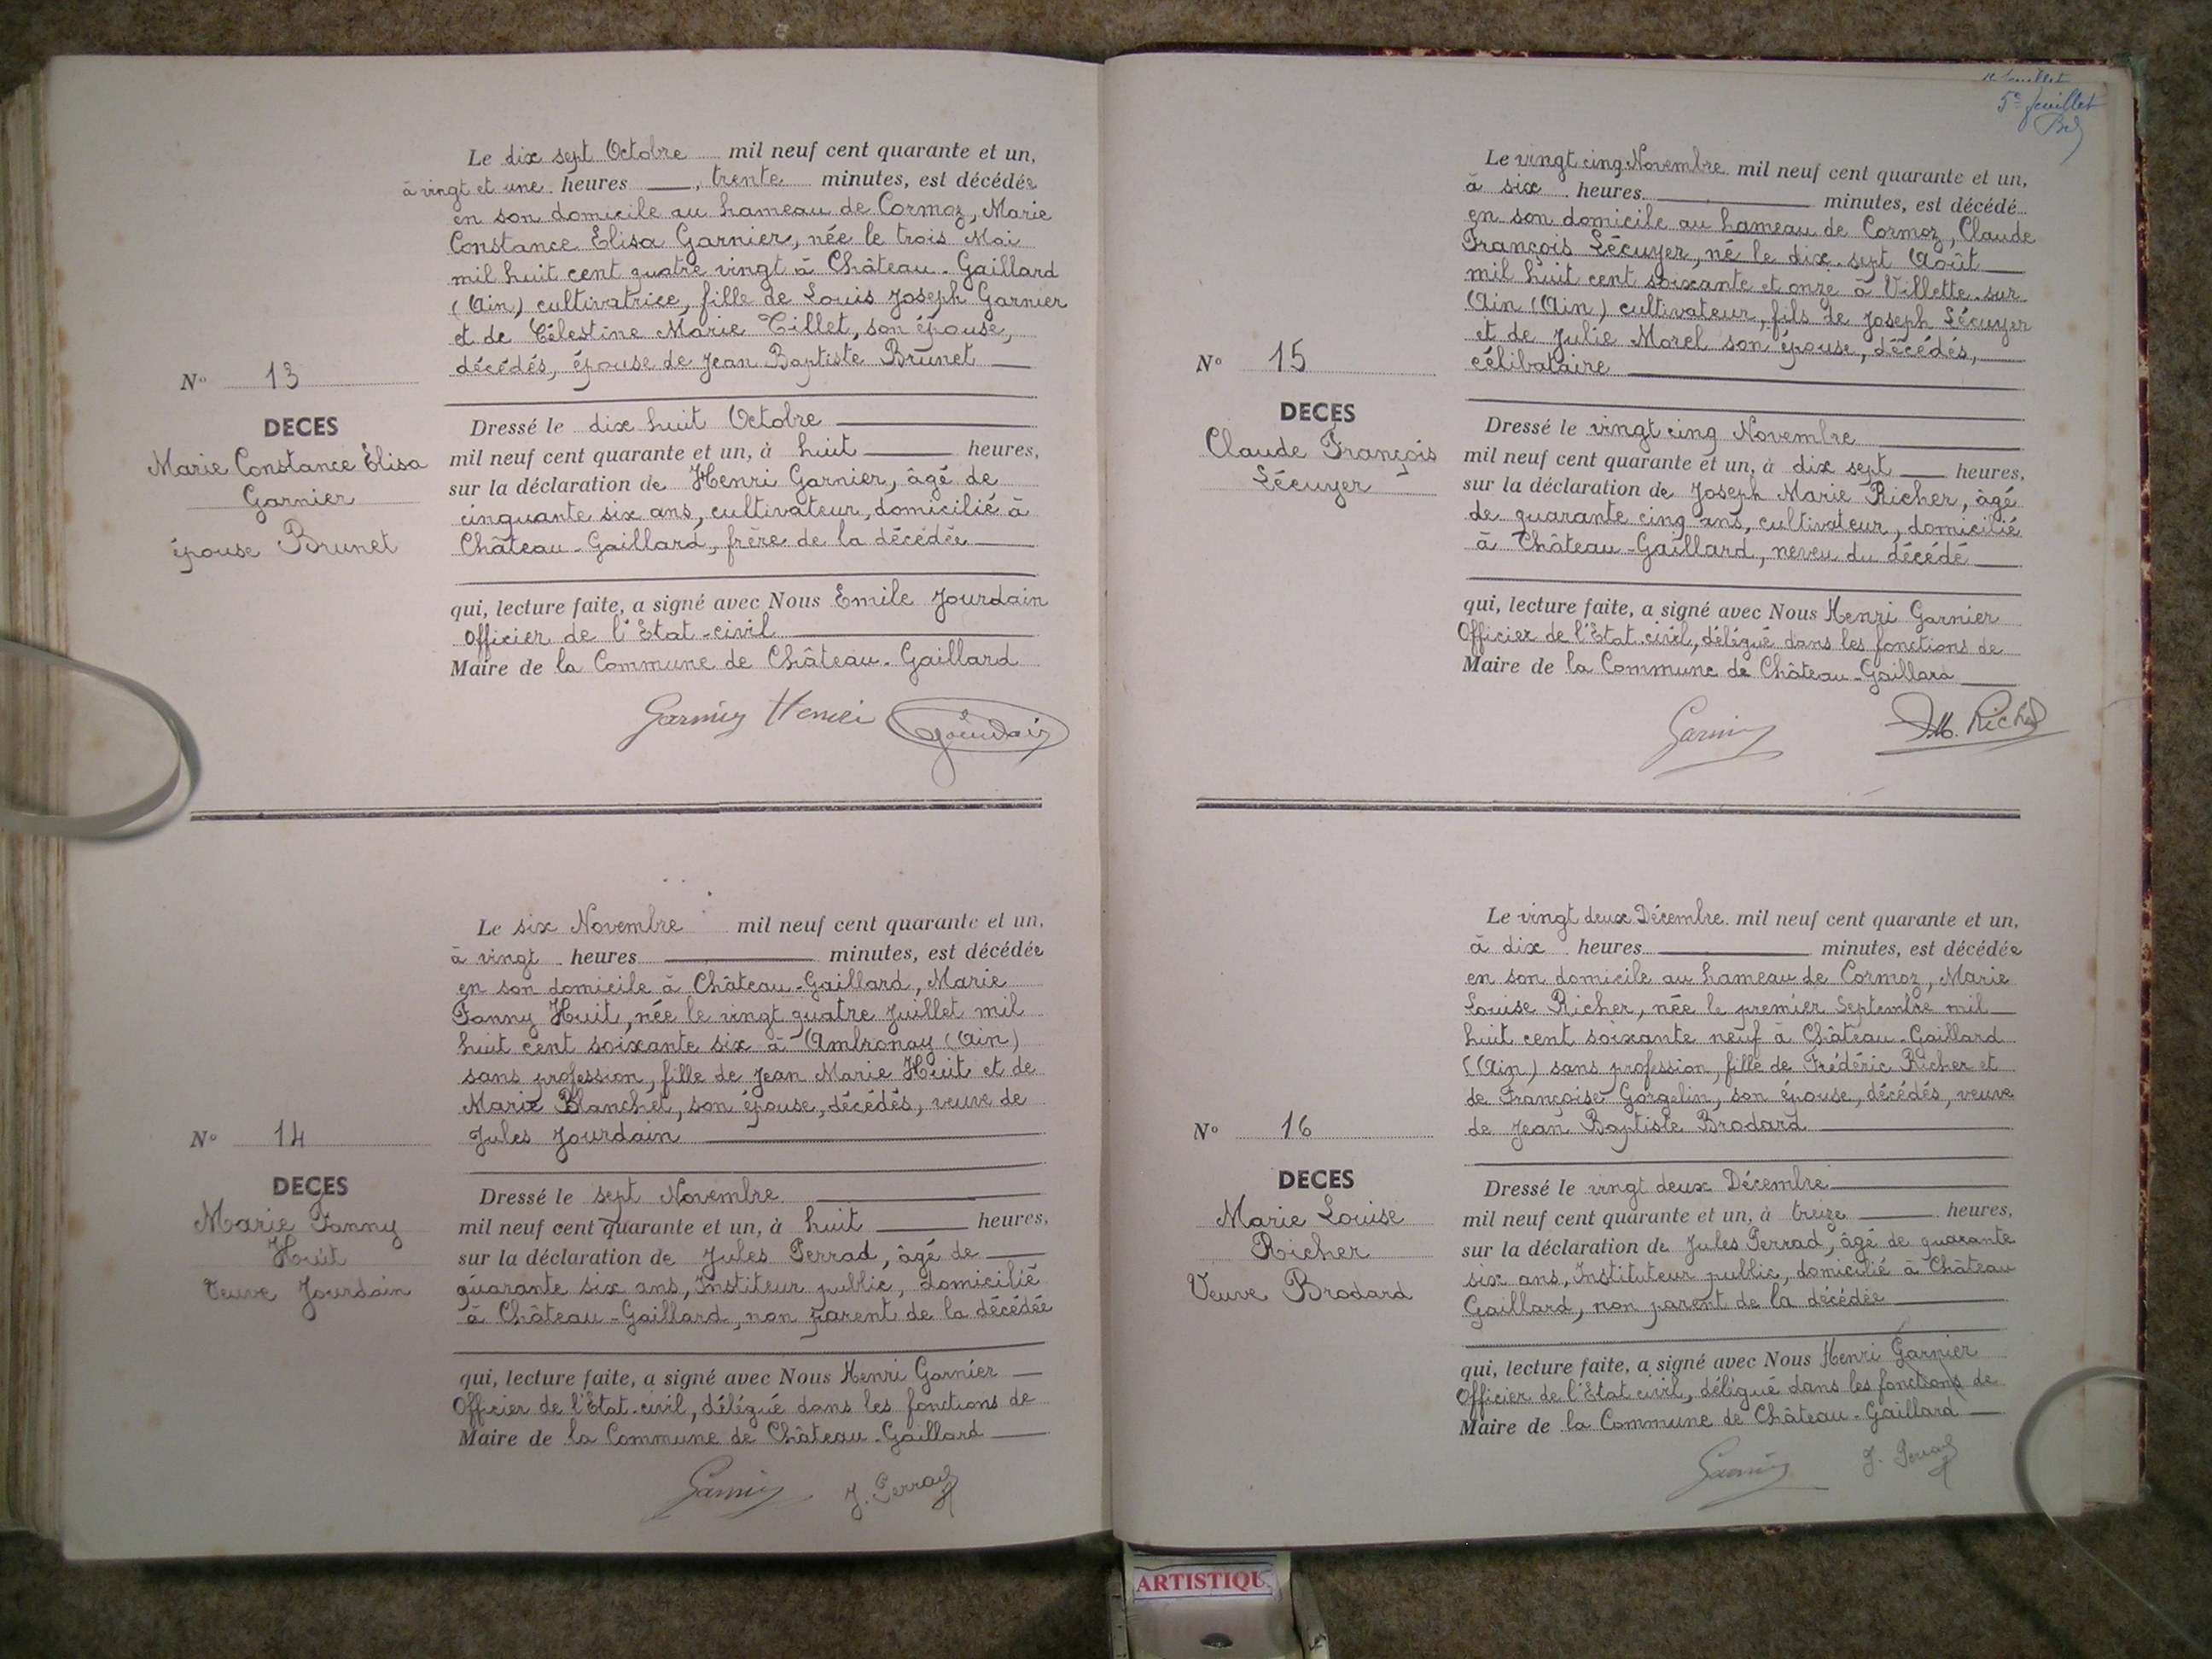 Le dix sept Octobre mil neuf cent quarante et un,
à vingt et une heures, trente minutes, est décédée
en son domicile au hameau de Cormoz, Marie
Constance Elisa Garnier, née le trois Mai
mil huit cent quatre vingt à Château-Gaillard
(Ain) cultivatrice, fille de Louis Joseph Garnier
et de Célestine Marie Tillet, son épouse,
décédés, épouse de Jean Baptiste Brunet
N° 13
DECES
Marie Constance Elisa
Garnier
épouse Brunet
Dressé le dix huit Octobre
mil neuf cent quarante et un, à huit heures,
sur la déclaration de Henri Garnier, âgé de
cinquante six ans, cultivateur, domicilié à
Château-Gaillard, frère de la décédée
qui, lecture faite, a signé avec Nous Emile Jourdain
Officier de l'Etat-civil
Maire de la Commune de Château-Gaillard
Garnier Henri Jourdain
Le six Novembre mil neuf cent quarante et un,
à vingt heures minutes, est décédée
en son domicile à Château-Gaillard, Marie
Fanny Huit, née le vingt quatre Juillet mil
huit cent soixante six à Ambronay (Ain)
sans profession, fille de Jean Marie Huit et de
Marie Blanchet, son épouse, décédés, veuve de
Jules Jourdain
N° 14
DECES
Marie Fanny
Huit
Veuve Jourdain
Dressé le sept Novembre
mil neuf cent quarante et un, à huit heures,
sur la déclaration de Jules Perrad, âgé de
quarante six ans, Instituteur public, domicilié
à Château-Gaillard, non parent de la décédée
qui, lecture faite, a signé avec Nous Henri Garnier
Officier de l'Etat-civil, délégué dans les fonctions de
Maire de la Commune de Château-Gaillard
Garnier J. Perrad
5e feuillet
Le vingt cinq Novembre mil neuf cent quarante et un,
à six heures minutes, est décédé
en son domicile au hameau de Cormoz, Claude
François Lécuyer, né le dix-sept Août
mil huit cent soixante et onze à Villette-sur
Ain (Ain) cultivateur, fils de Joseph Lécuyer
et de Julie Morel son épouse, décédés,
célibataire
N° 15
DECES
Claude François
Lécuyer
Dressé le vingt cinq Novembre
mil neuf cent quarante et un, à dix sept heures,
sur la déclaration de Joseph Marie Richer, âgé
de quarante cinq ans, cultivateur, domicilié
à Château-Gaillard, neveu du décédé
qui, lecture faite, a signé avec Nous Henri Garnier
Officier de l'Etat civil, délégué dans les fonctions de
Maire de la Commune de Château-Gaillard
Garnier JM. Richer
Le vingt deux Décembre mil neuf cent quarante et un,
à dix heures minutes, est décédée
en son domicile au hameau de Cormoz, Marie
Louise Richer, née le premier Septembre mil
huit cent soixante neuf à Château-Gaillard
(Ain) sans profession, fille de Frédéric Richer et
de Françoise Gorgelin, son épouse, décédés, veuve
de Jean Baptiste Brodard
N° 16
DECES
Marie Louise
Richer
Veuve Brodard
Dressé le vingt deux Décembre
mil neuf cent quarante et un, à treize heures,
sur la déclaration de Jules Perrad, âgé de quarante
six ans, Instituteur public, domicilié à Château
Gaillard, non parent de la décédée
qui, lecture faite, a signé avec Nous Henri Garnier
Officier de l'Etat civil, délégué dans les fonctions de
Maire de la Commune de Château-Gaillard
Garnier J. Perrad
ARTISTIQU